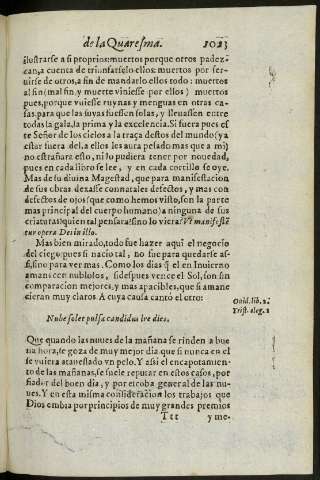 de la Quaresma. 1023
ilustrarse a si proprios: muertos porque otros padez-
can, a cuenta de triunfarselo ellos: muertos por ser-
uirse de otros, a fin de mandarlo ellos todo: muertos
al fin (mal fin, y muerte viniesse por ellos) muertos
pues, porque vuiesse ruynas y menguas en otras ca-
sas, para que las suyas fuessen solas, y lleuassen entre
todas la gala, la prima y la excelencia. Si fuera pues es
te Señor de los cielos a la traça destos del mundo (ya
estar fuera del, a ellos les auta pesado mas que a mi)
no estrañara esto, ni lo pudiera tener por nouedad,
pues en cada libro se lee, y en cada corrillo se oye.
Mas de su diuina Magestad, que para manifestacion
de sus obras dexasse connatales defectos, y mas con
defectos de ojos (que como hemos visto, son la parte
mas principal del cuerpo humano) a ninguna de sus
criaturas quien tal pensara? sino lo viera: Vt manifeste
tur opera Dei in illo.
Mas bien mirado, todo fue hazer aqui el negocio
del ciego: pues si nacio tal, no fue para quedarse as-
si, sino para ver mas. Como los dias q̃ el en Inuierno
amanecen nublosos, si despues vence el Sol, son sin
comparacion mejores, y mas apacibles, que si amane
cieran muy claros. A cuya causa cantò el otro:
Ouid. lib. 2.
Trist. eleg. 2
Nube solet pulsa candidus ire dies.
Que quando las nuues de la mañana se rinden a bue
na hora, se goza de muy mejor dia que si nunca en el
se vuiera atrauessado vn pelo. Y assi el encapotamien-
to de las mañanas, se suele reputar en estos casos, por
fiador del buen dia, y por escoba general de las nu-
ues. Y en esta misma consideracion los trabajos que
Dios embia por principios de muy grandes premios
Ttt y me-